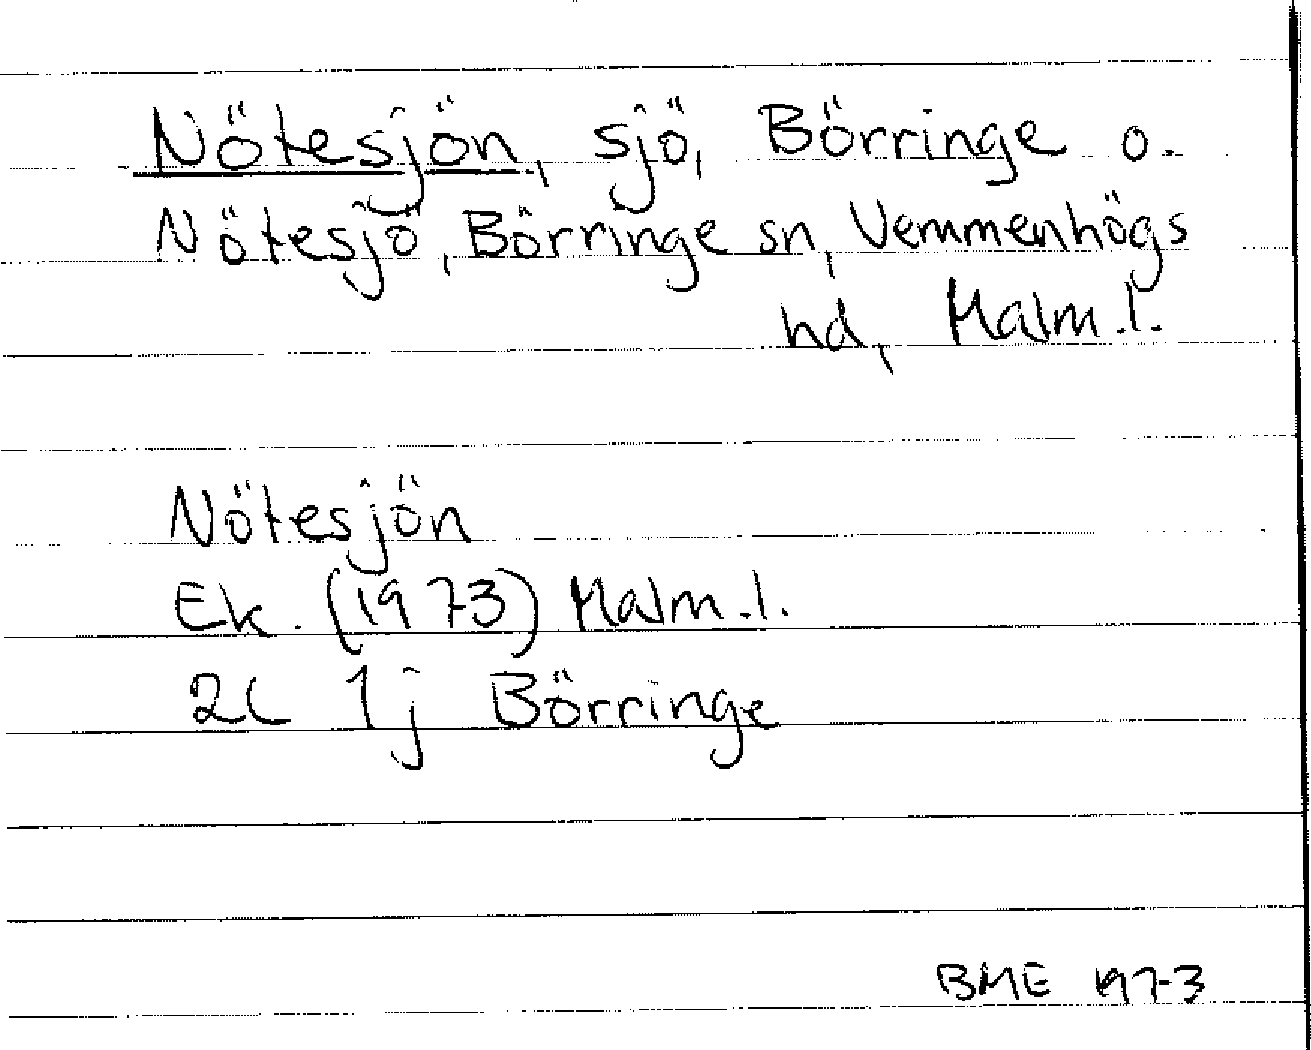 Nötesjön, sjö, Börringe o.
Nötesjö, Börringe sn, Vemmenhögs
hd, Malm.l.
Nötesjön
Ek. (1973) Malm.l.
2C 1j Börringe
BME 1973